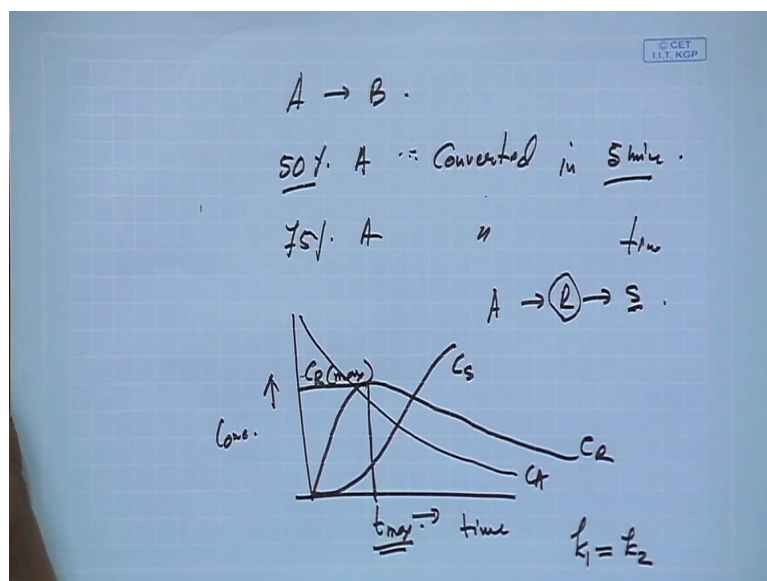 © CET
I.I.T. KGP
A → B .
50%. A ∴ Converted in 5 min .
75%. A " time
A → R → S .
CR(max)
CS
Conc.
CR
CA
tmax. → time
k1 = k2